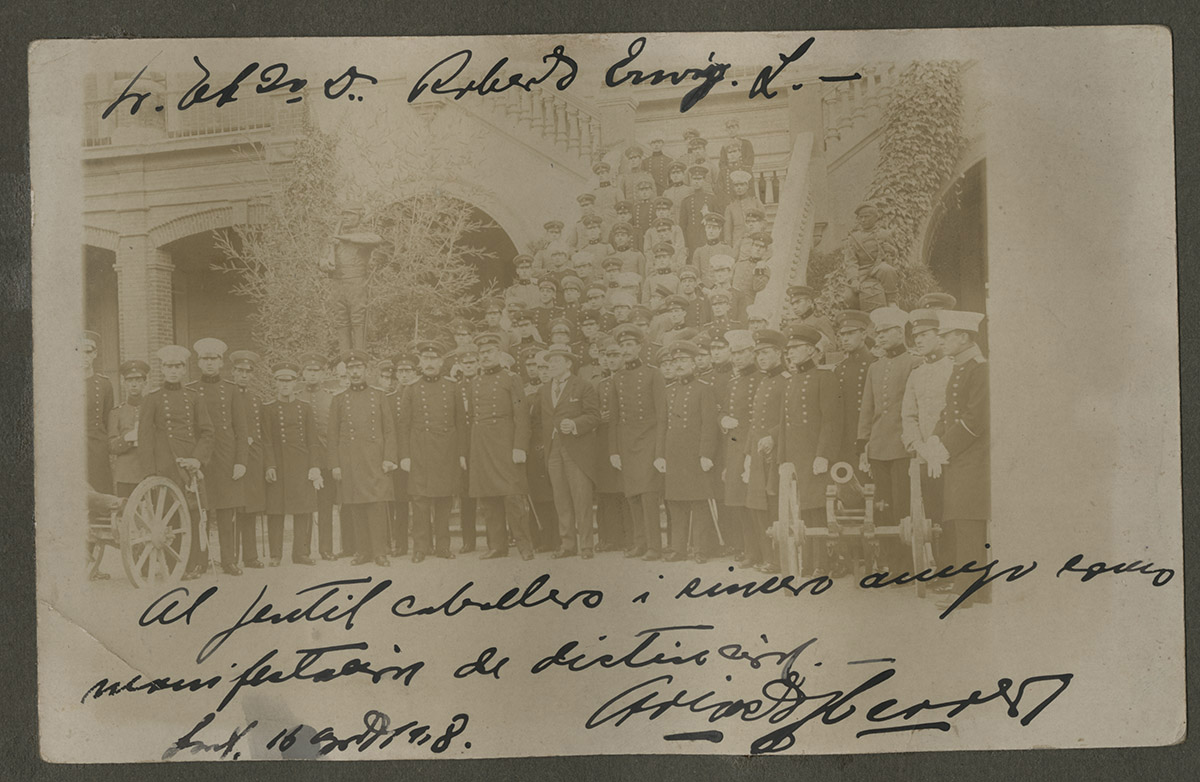 Sr. D. Roberto Erwig. L. —
Al jentil caballero i sincero amigo como
manifestacion de distincion. —
16 1918.